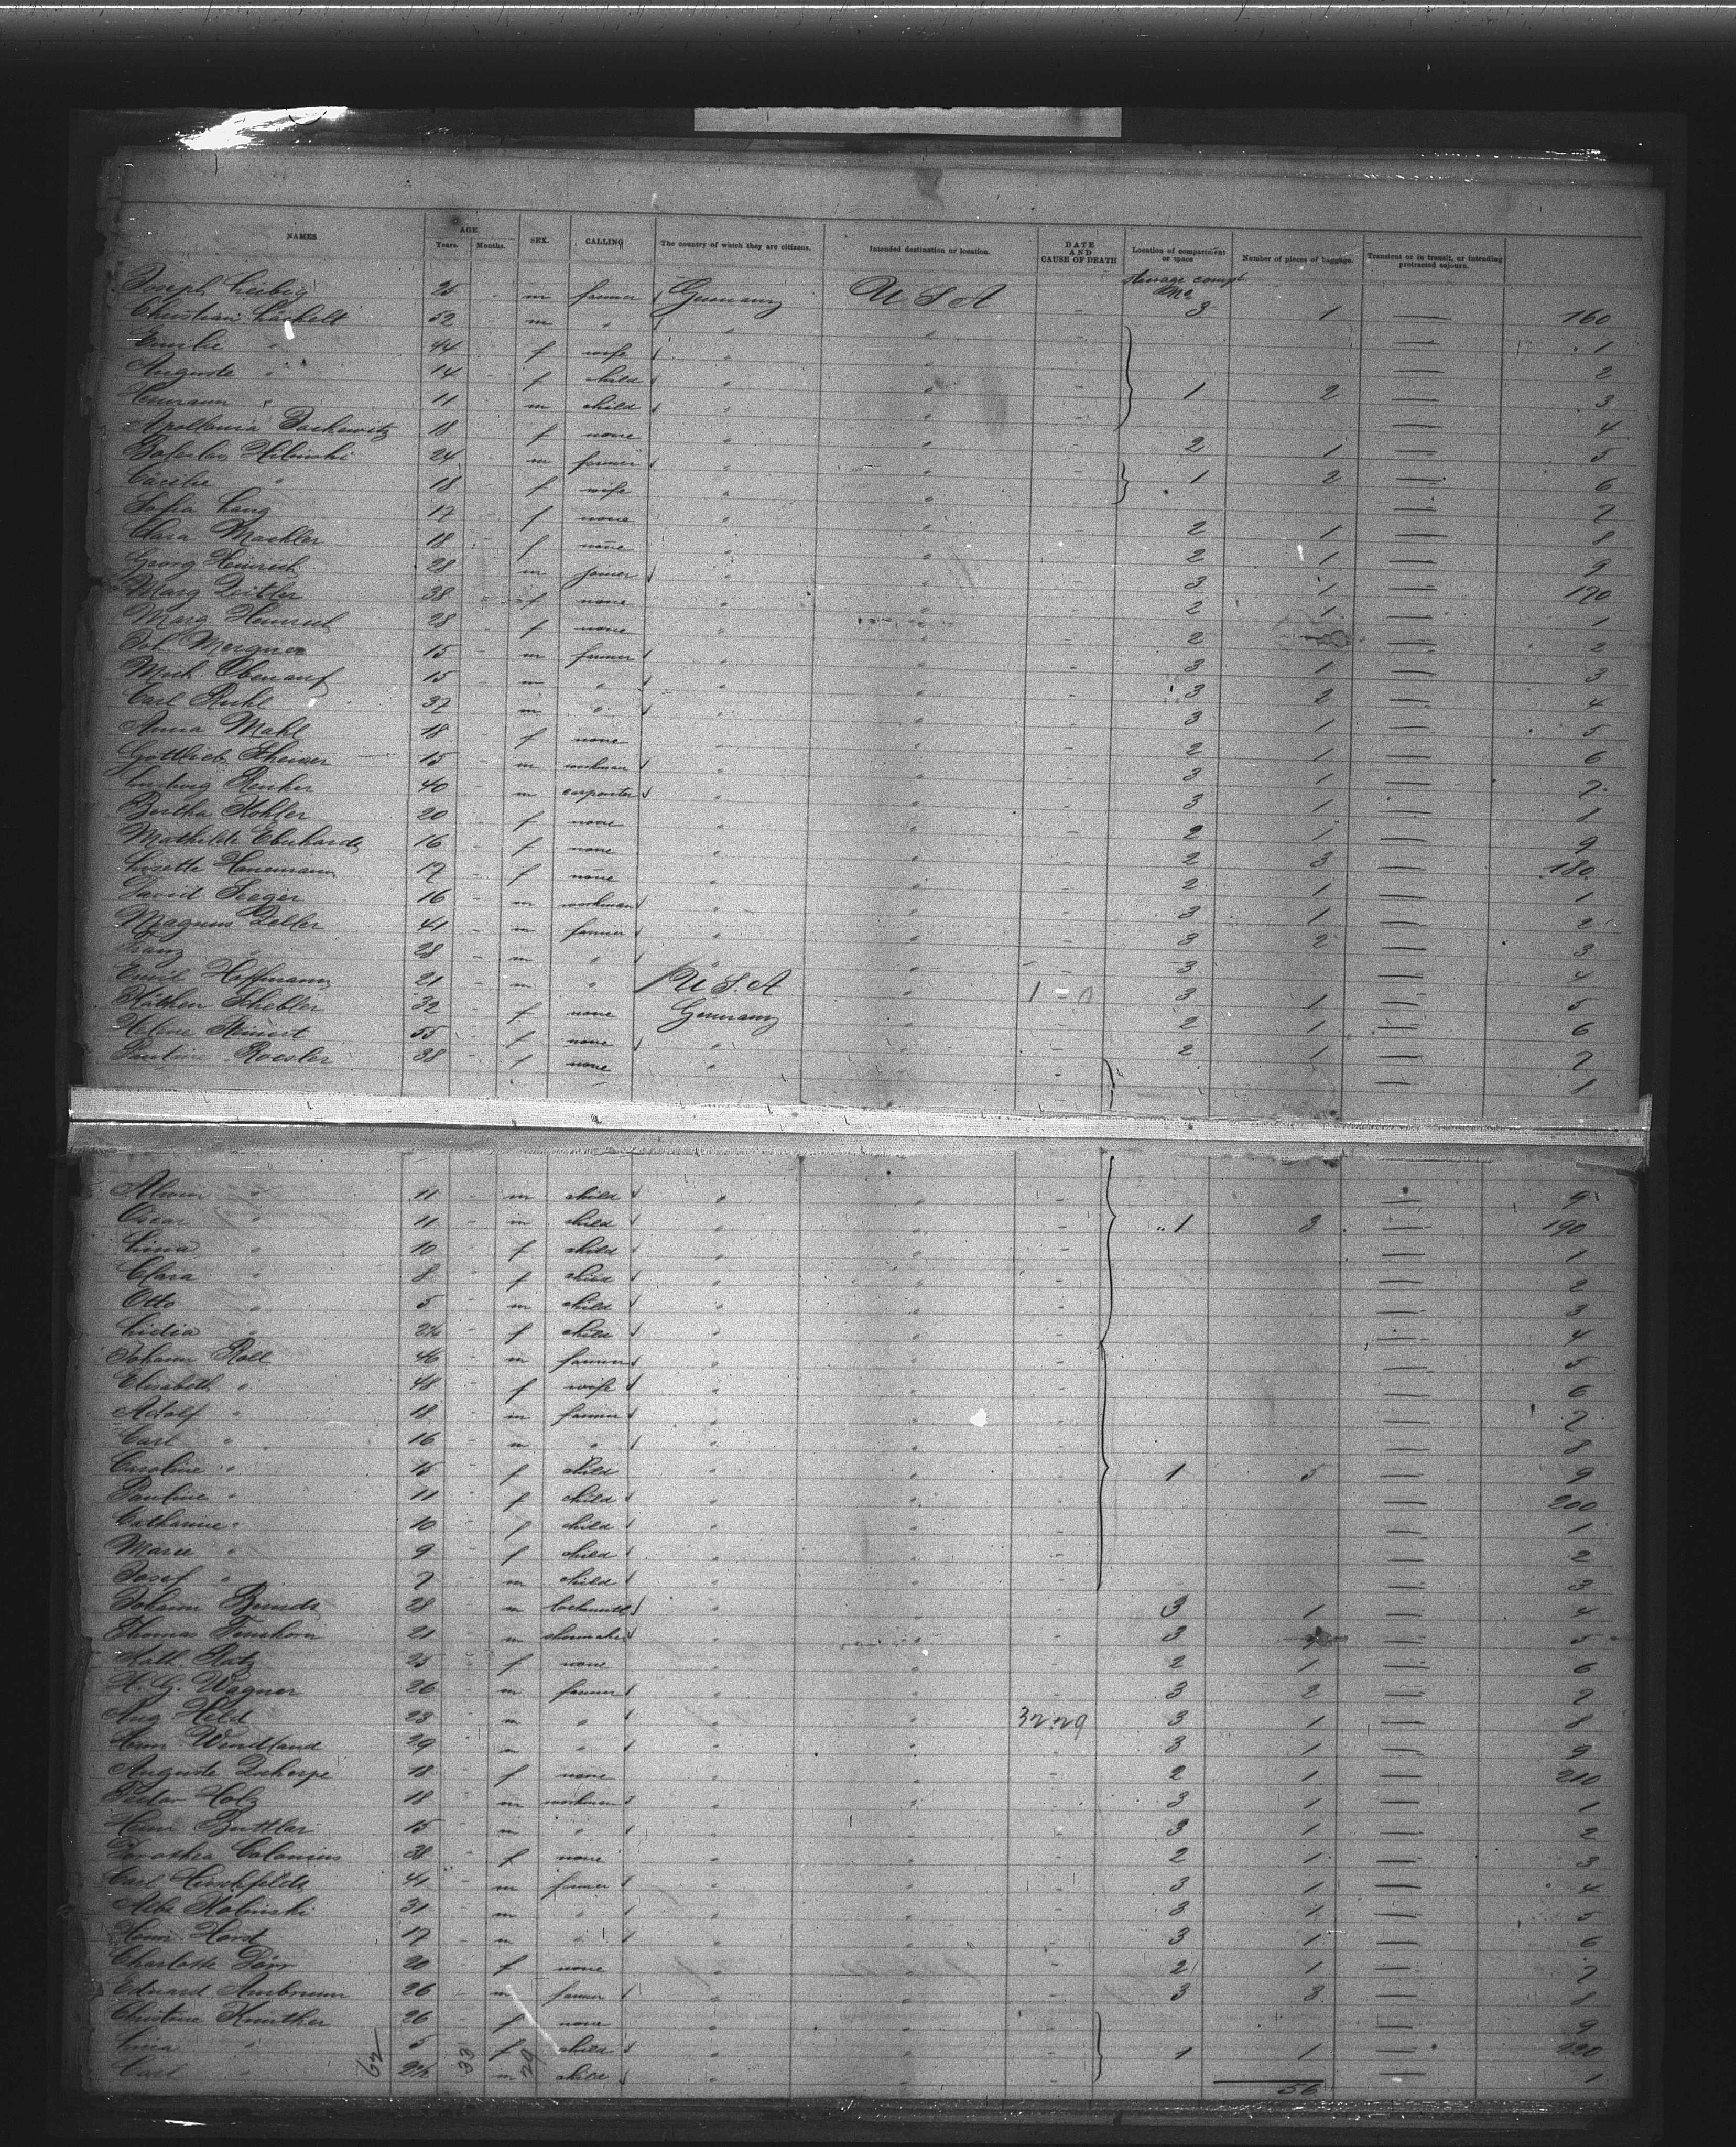 NAMES AGE. Years. Months. SEX. CALLING The country of which they are citizens. Intended destination or location. DATE AND CAUSE OF DEATH Location of compartment or space Number of pieces of baggage. Transient or in transit, or intending protracted sojourn.
steerage compt
Joseph Liebig 25 - m farmer Germany U S A - 3 1 — 160
Christian 52 - m " " " - — 1
Emilie " 44 - f wife " " - — 2
Auguste " 14 - f child " " - 1 2 — 3
Hermann " 11 - m child " " - — 4
Apollonia 18 - f none " " - 2 1 — 5
24 - m farmer " " - 1 2 — 6
" 18 - f wife " " - — 7
Sofia Lang 17 - f none " " - 2 1 — 8
Clara Maehler 18 - f none " " - 2 1 — 9
Georg Heinrich 28 - m joiner " " - 3 1 — 170
Marg 38 - f none " " - 2 1 — 1
Marg. Heinrich 28 - f none " " - 2 — 2
Joh. Mergner 15 - m farmer " " - 3 1 — 3
Mich. Obenauf 15 - m " " " - 3 2 — 4
Carl Ruhl 37 - m " " " - 3 1 — 5
Anna Mahl 18 - f none " " - 2 1 — 6
Gottlieb 15 - m workman " " - 3 1 — 7
Ludwig 40 - m carpenter " " - 3 1 — 8
Bertha Kohler 20 - f none " " - 2 1 — 9
Mathilde Eberhardt 16 - f none " " - 2 3 — 180
Lisette Hanemann 17 - f none " " - 2 1 — 1
David Seeger 16 - m workman " " - 3 1 — 2
Magnus Zeller 41 - m farmer " " - 3 2 — 3
Franz " 28 - m " " " - 3 — 4
Emil Hoffmann 21 - m " U.S.A " 1 - 0 3 1 — 5
Kathen Schebler 32 - f none Germany " - 2 1 — 6
Helene Steinert 55 - f none " " - 2 1 — 7
Pauline Roesler 38 - f none " " - — 8
Alwin " 11 - m child " " - — 9
Oscar " 11 - m child " " - 1 3 — 190
Lina " 10 - f child " " - — 1
Clara " 8 - f child " " - — 2
Otto " 5 - m child " " - — 3
Lidia " - f child " " - — 4
Johann Roll 46 - m farmer " " - — 5
Elisabeth " 48 - f wife " " - — 6
Adolf " 18 - m farmer " " - — 7
Carl " 16 - m " " " - — 8
Caroline " 15 - f child " " - 1 5 — 9
Pauline " 11 - f child " " - — 200
Catharine " 10 - f child " " - — 1
Marie " 9 - f child " " - — 2
Josef " 7 - m child " " - — 3
Johann 28 - m locksmith " " - 3 1 — 4
Thomas 21 - m shoemaker " " - 3 — 5
Kath. Ratz 25 - f none " " - 2 1 — 6
H. G. Wagner 26 - m farmer " " - 3 2 — 7
Aug Held 23 - m " " " 32 29 3 1 — 8
Herm. Wendland 29 - m " " " - 3 1 — 9
Auguste Zscherpe 18 - f none " " - 2 1 — 210
Holz 18 - m workman " " - 3 1 — 1
Heinr Buttlar 15 - m " " " - 3 1 — 2
Dorothea Colonius 38 - f none " " - 2 1 — 3
Carl Hirschfeldt 41 - m farmer " " - 3 1 — 4
31 - m " " " - 3 1 — 5
Heinr. Horst 17 - m " " " - 3 1 — 6
Charlotte Dörr 20 - f none " " - 2 1 — 7
Eduard 26 - m farmer " " - 3 3 — 8
Christine Kunther 26 - f none " " - — 9
Lina " 5 - f child " " - 1 1 — 220
Carl " - m child " " - — 1
62 33 29
56